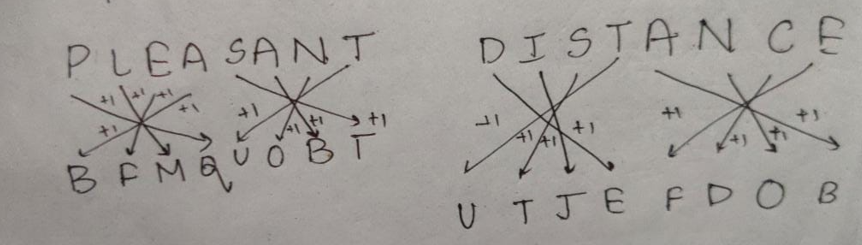 PLEASANT DISTANCE
+1 +1 +1 +1 +1 +1 +1 +1 -1 +1 +1 +1 +1 +1 +1 +1
BFMQUOBT UTJEFDOB